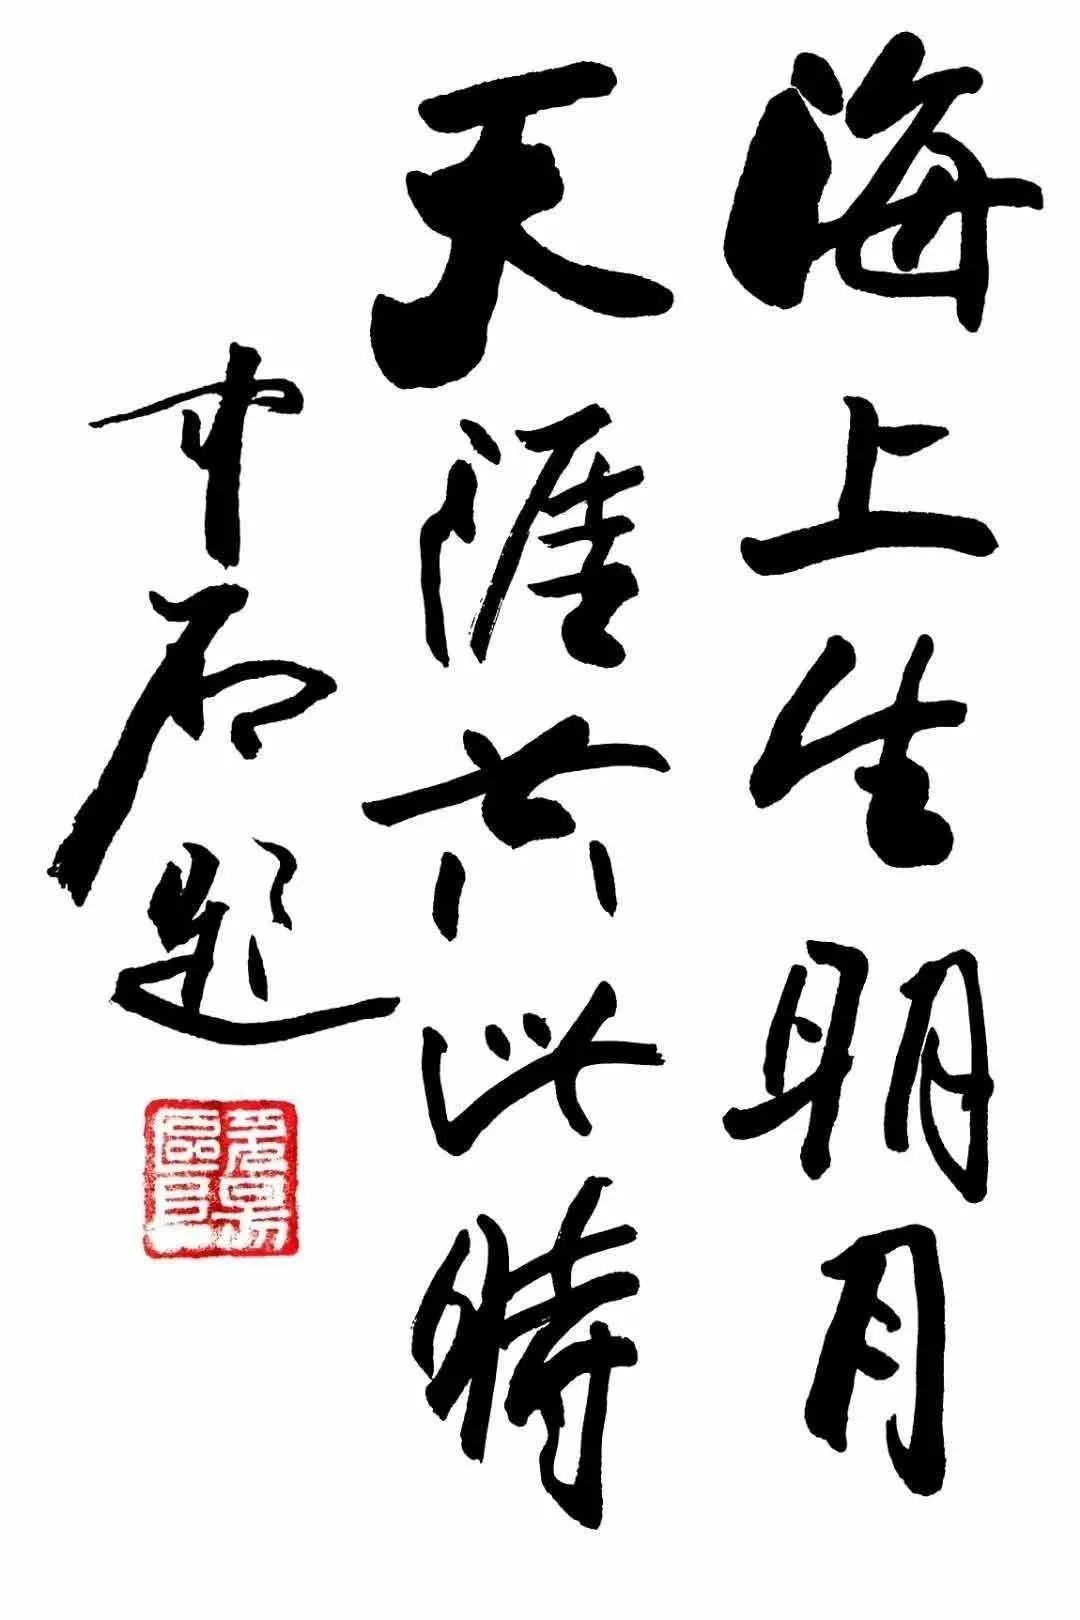 海上生明月
天涯共此時
中石題